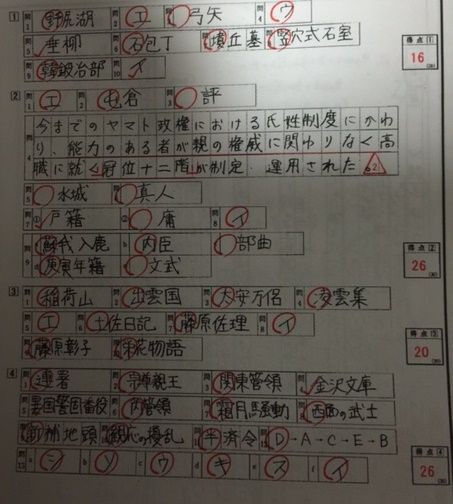 1 問1 野尻湖 問2 エ 問3 弓矢 問4 ウ
問5 垂柳 問6 石包丁 問7 墳丘墓 問8 竪穴式石室
問9 韓鍛冶部 問10 イ
得点① 16
2 問1 エ 問2 屯倉 問3 評
問4 今までのヤマト政権における氏性制度にかわ
り、能力のある者が親の権威に関ゆりなく高
職に就く冠位十二階が制定、運用された。
問5 水城 問6 真人
問7 ① 戸籍 ② 庸 問8 イ
問9 a 蘇我入鹿 b 内臣 c 部曲
d 庚寅年籍 e 文武
得点② 26
3 問1 稲荷山 問2 出雲国 問3 太安万侶 問4 凌雲集
問5 エ 問6 土佐日記 問7 藤原佐理 問8 イ
藤原彰子 栄花物語
得点③ 20
4 問1 連署 問2 宗尊親王 問3 関東管領 問4 金沢文庫
問5 異国警固番役 問6 内管領 問7 霜月騒動 問8 西面の武士
新補地頭 観応の擾乱 半済令 D→A→C→E→B
問13 a シ b ソ c ウ d キ e ス f イ
得点④ 26